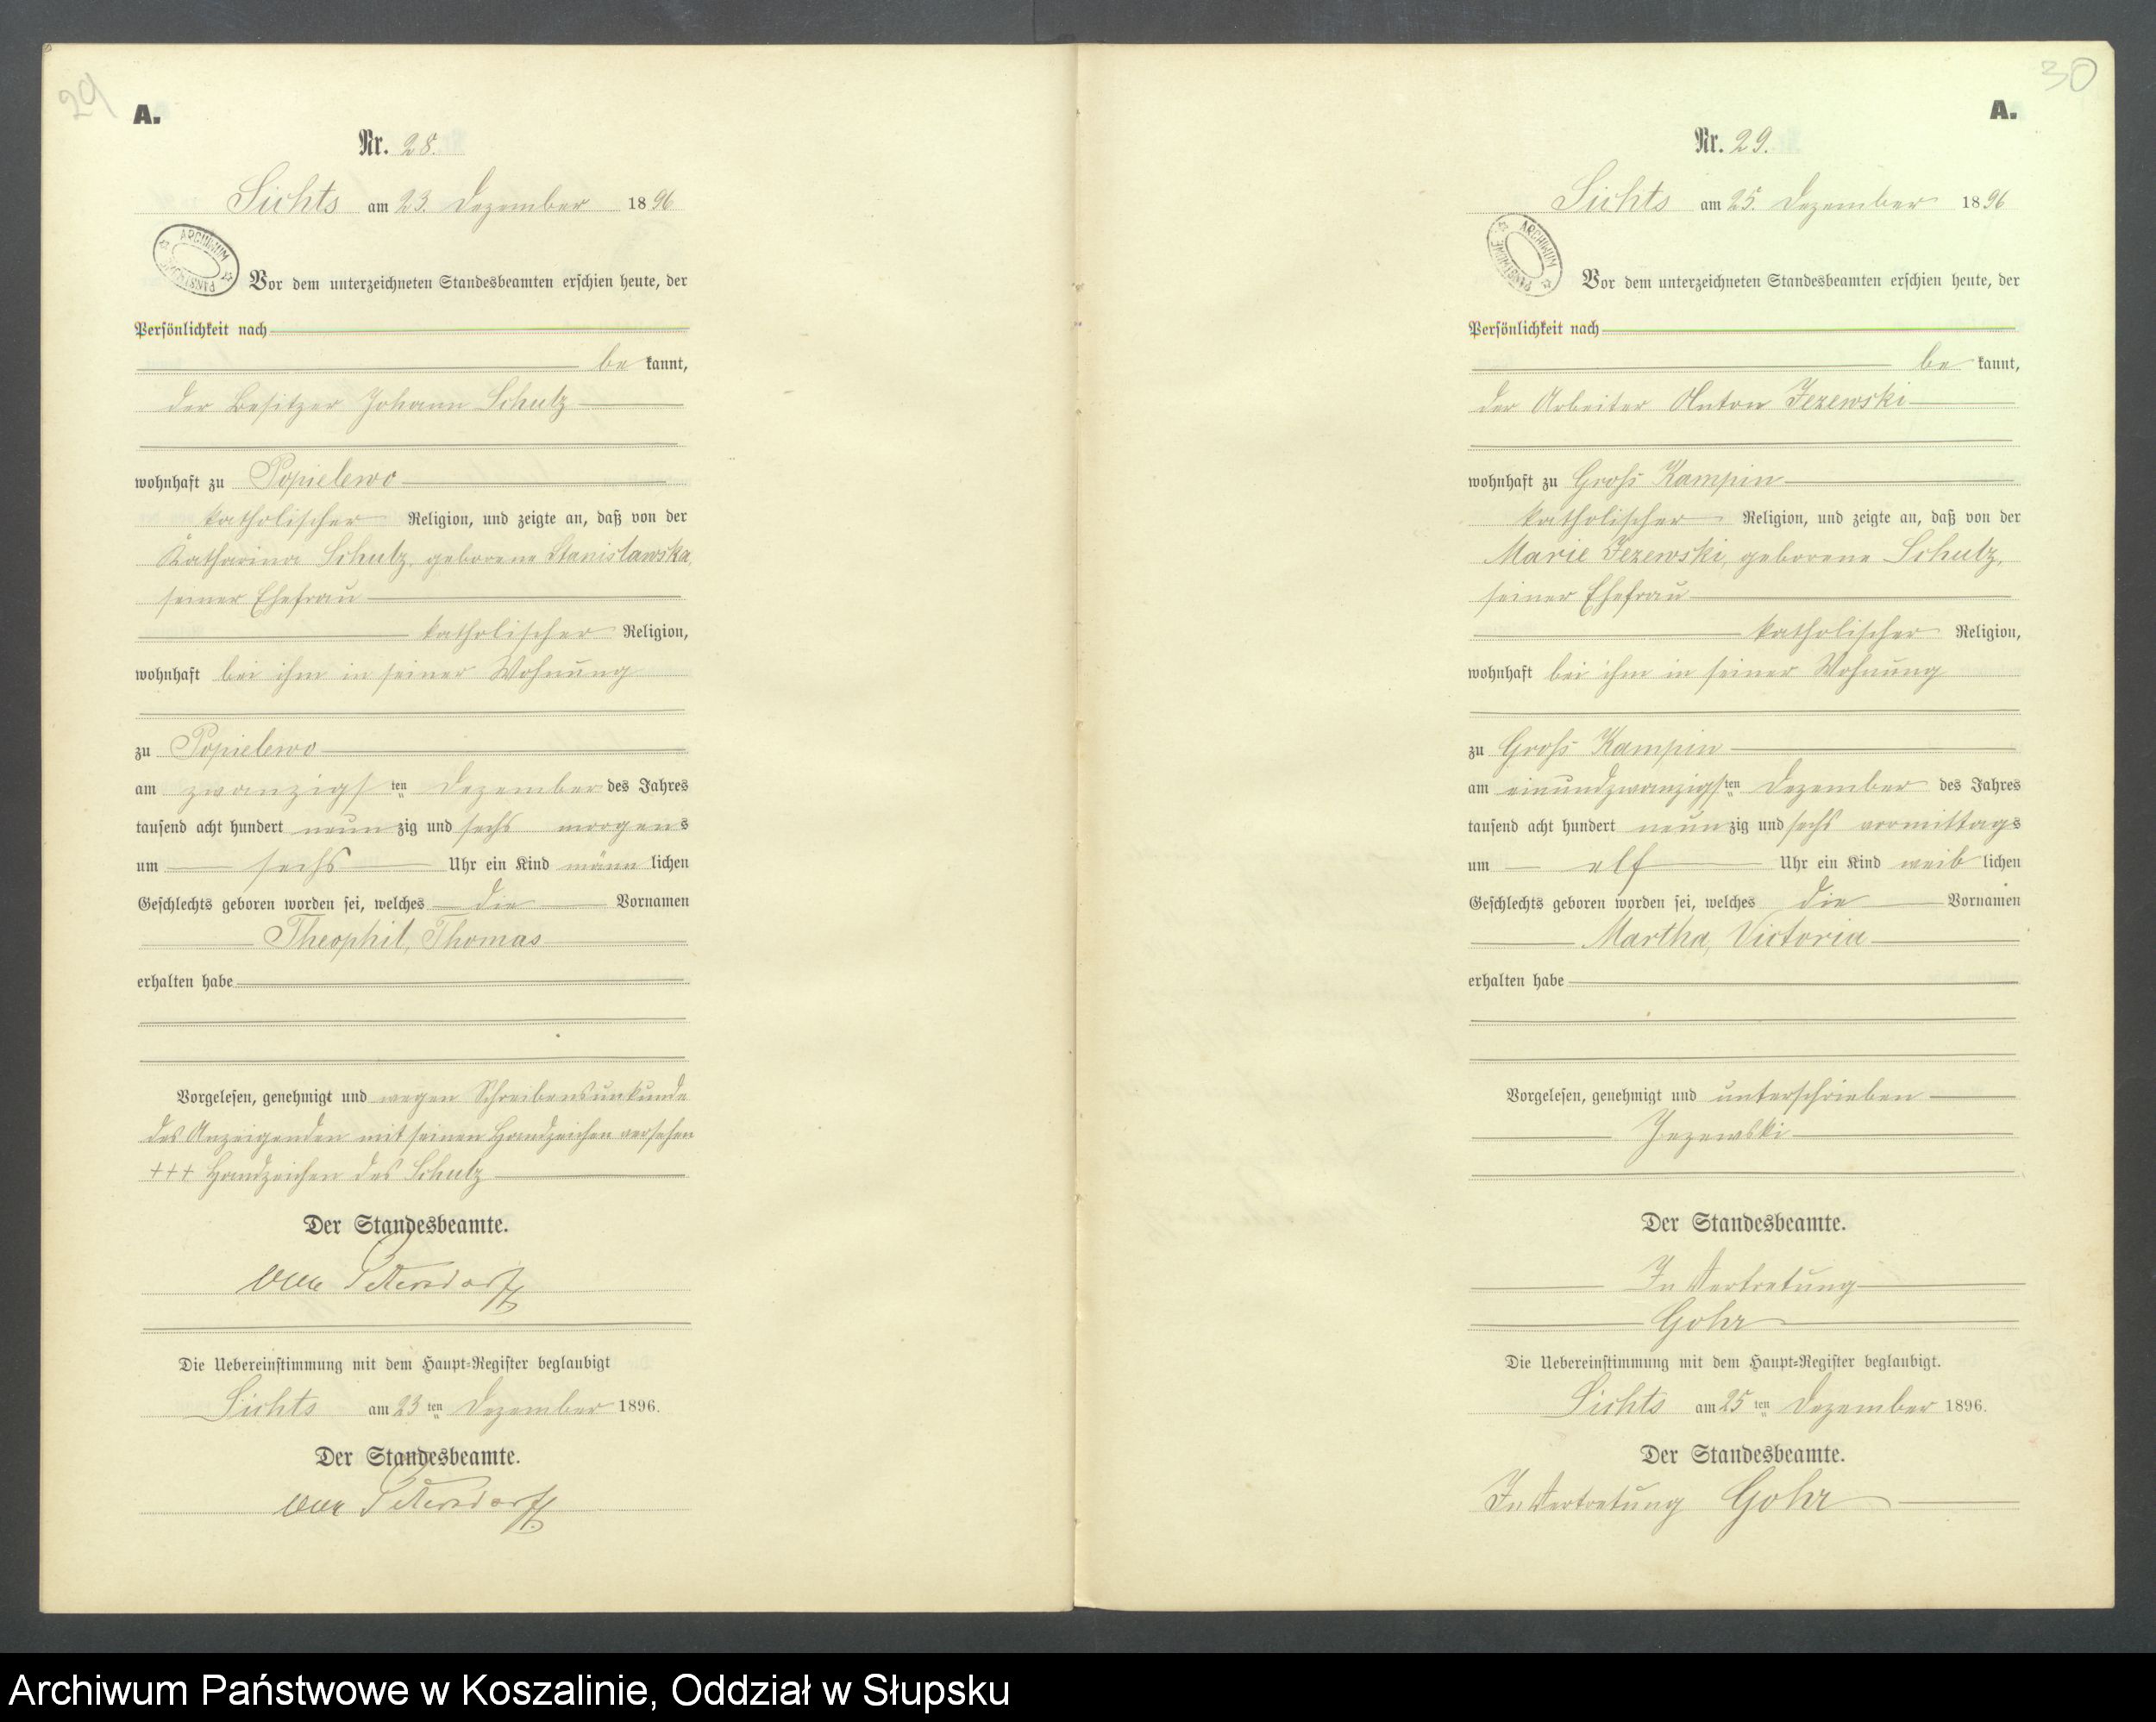 29
A.
Nr. 28.
Sichts am 23. Dezember 1896
ARCHIWUM PAŃSTWOWE
Vor dem unterzeichneten Standesbeamten erschien heute, der
Persönlichkeit nach
be kannt,
der Besitzer Johann Schulz
wohnhaft zu Popielewo
katholischer Religion, und zeigte an, daß von der
Katharina Schulz, geborene Stanislawska,
seiner Ehefrau
katholischer Religion,
wohnhaft bei ihm in seiner Wohnung
zu Popielewo
am zwanzigsten Dezember des Jahres
tausend acht hundert neunzig und sechs morgens
um sechs Uhr ein Kind männlichen
Geschlechts geboren worden sei, welches die Vornamen
Theophil, Thomas
erhalten habe
Vorgelesen, genehmigt und wegen Schreibensunkunde
des Anzeigenden mit seinen Handzeichen versehen
+++ Handzeichen des Schulz
Der Standesbeamte.
von Petersdorff
Die Uebereinstimmung mit dem Haupt-Register beglaubigt
Sichts am 23ten Dezember 1896.
Der Standesbeamte.
von Petersdorff.
30
A.
Nr. 29.
Sichts am 25. Dezember 1896
ARCHIWUM PAŃSTWOWE
Vor dem unterzeichneten Standesbeamten erschien heute, der
Persönlichkeit nach
be kannt,
der Arbeiter Anton Jezewski
wohnhaft zu Groß Kampin
katholischer Religion, und zeigte an, daß von der
Marie Jezewski, geborene Schulz,
seiner Ehefrau
katholischer Religion,
wohnhaft bei ihm in seiner Wohnung
zu Groß Kampin
am einundzwanzigsten Dezember des Jahres
tausend acht hundert neunzig und sechs vormittags
um elf Uhr ein Kind weiblichen
Geschlechts geboren worden sei, welches die Vornamen
Martha, Victoria
erhalten habe
Vorgelesen, genehmigt und unterschrieben
Jezewski
Der Standesbeamte.
In Vertretung
Gohr
Die Uebereinstimmung mit dem Haupt-Register beglaubigt.
Sichts am 25ten Dezember 1896.
Der Standesbeamte.
In Vertretung Gohr
Archiwum Państwowe w Koszalinie, Oddział w Słupsku